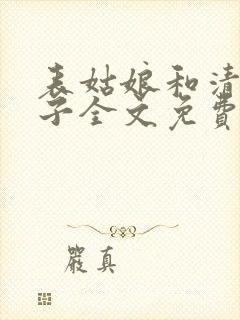 表姑娘和清
子全文免費
嚴真